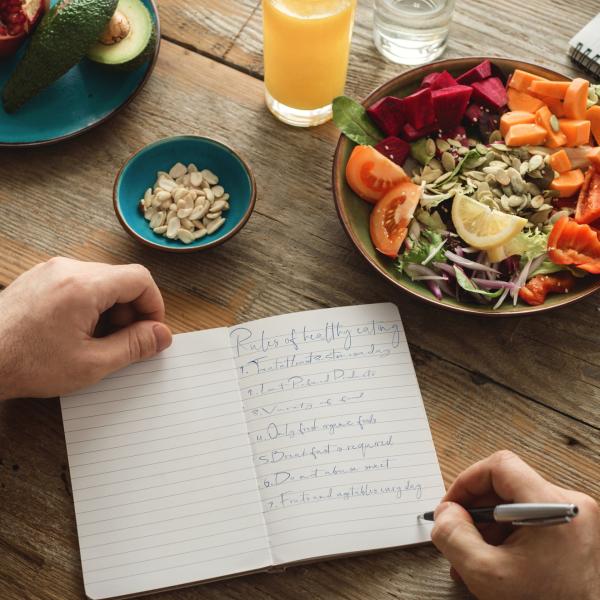 Rules of healthy eating
1. day
2.
3. Variety of food
4. Only fresh organic foods
5. Breakfast is required
6. Do not abuse meat
7. Fruits and vegetables every day